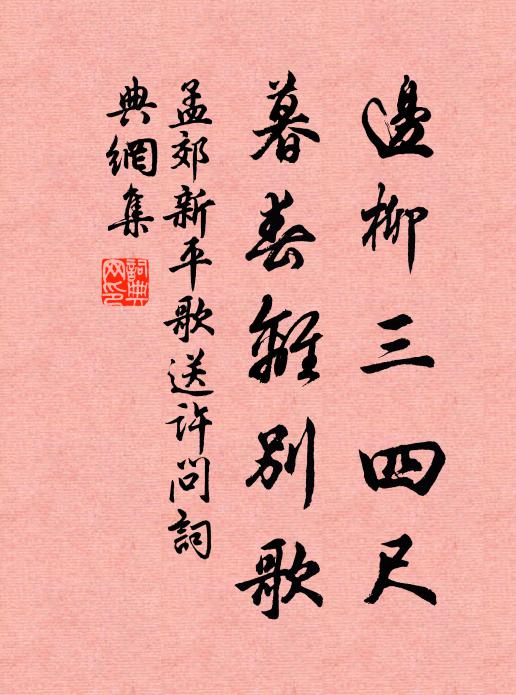 邊柳三四尺
暮春離別歌
孟郊新平歌送許問詞
典網集
詞典網印